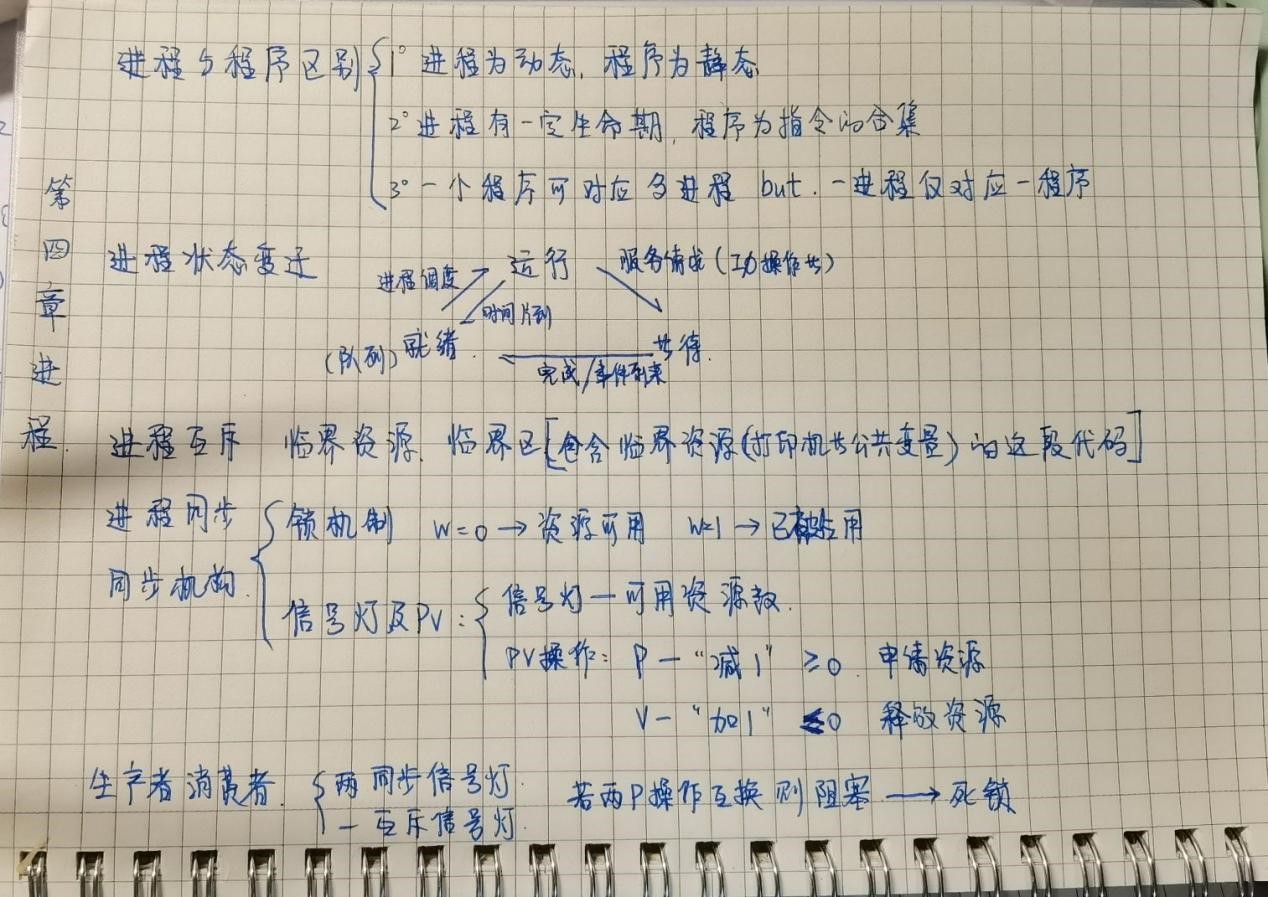 第四章 进程.
进程与程序区别 1° 进程为动态, 程序为静态
2° 进程有一定生命期, 程序为指令的合集
3° 一个程序可对应多进程 but. 一进程仅对应一程序
进程状态变迁
进程调度 运行 服务请求 (I/O操作等)
时间片到
(队列) 就绪. 等待.
完成/事件到来
进程互斥 临界资源. 临界区[包含临界资源(打印机等公共变量)的这段代码]
进程同步 锁机制 W=0→资源可用 W=1→已被占用
同步机构.
信号灯及PV: 信号灯—可用资源数.
PV操作: P—"减1" ≥0. 申请资源
V—"加1" ≤0 释放资源
生产者消费者. 两同步信号灯.
一互斥信号灯. 若两P操作互换则阻塞→死锁